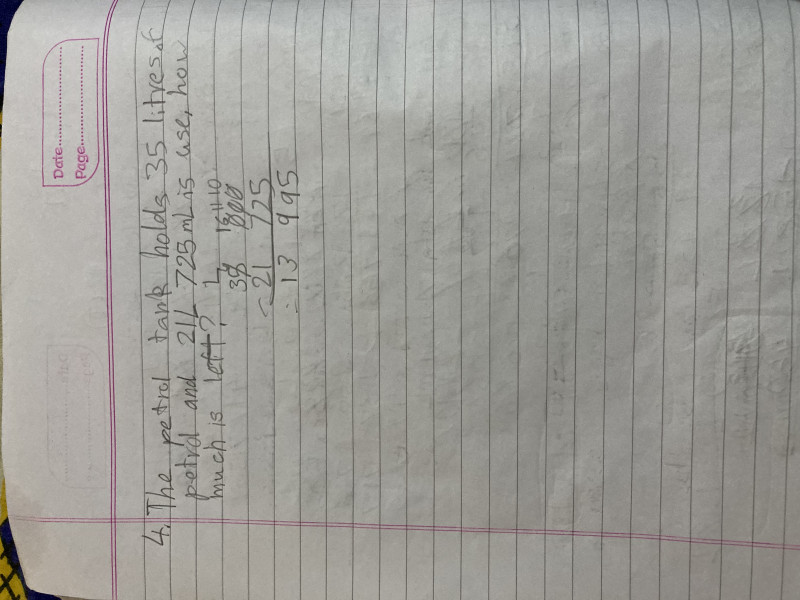 Date..................
Page..................
4. The petrol tank holds 35 litres of
petrol and 21L 725 mL is use, how
much is left?
L
35 000
- 21 725
= 13 995